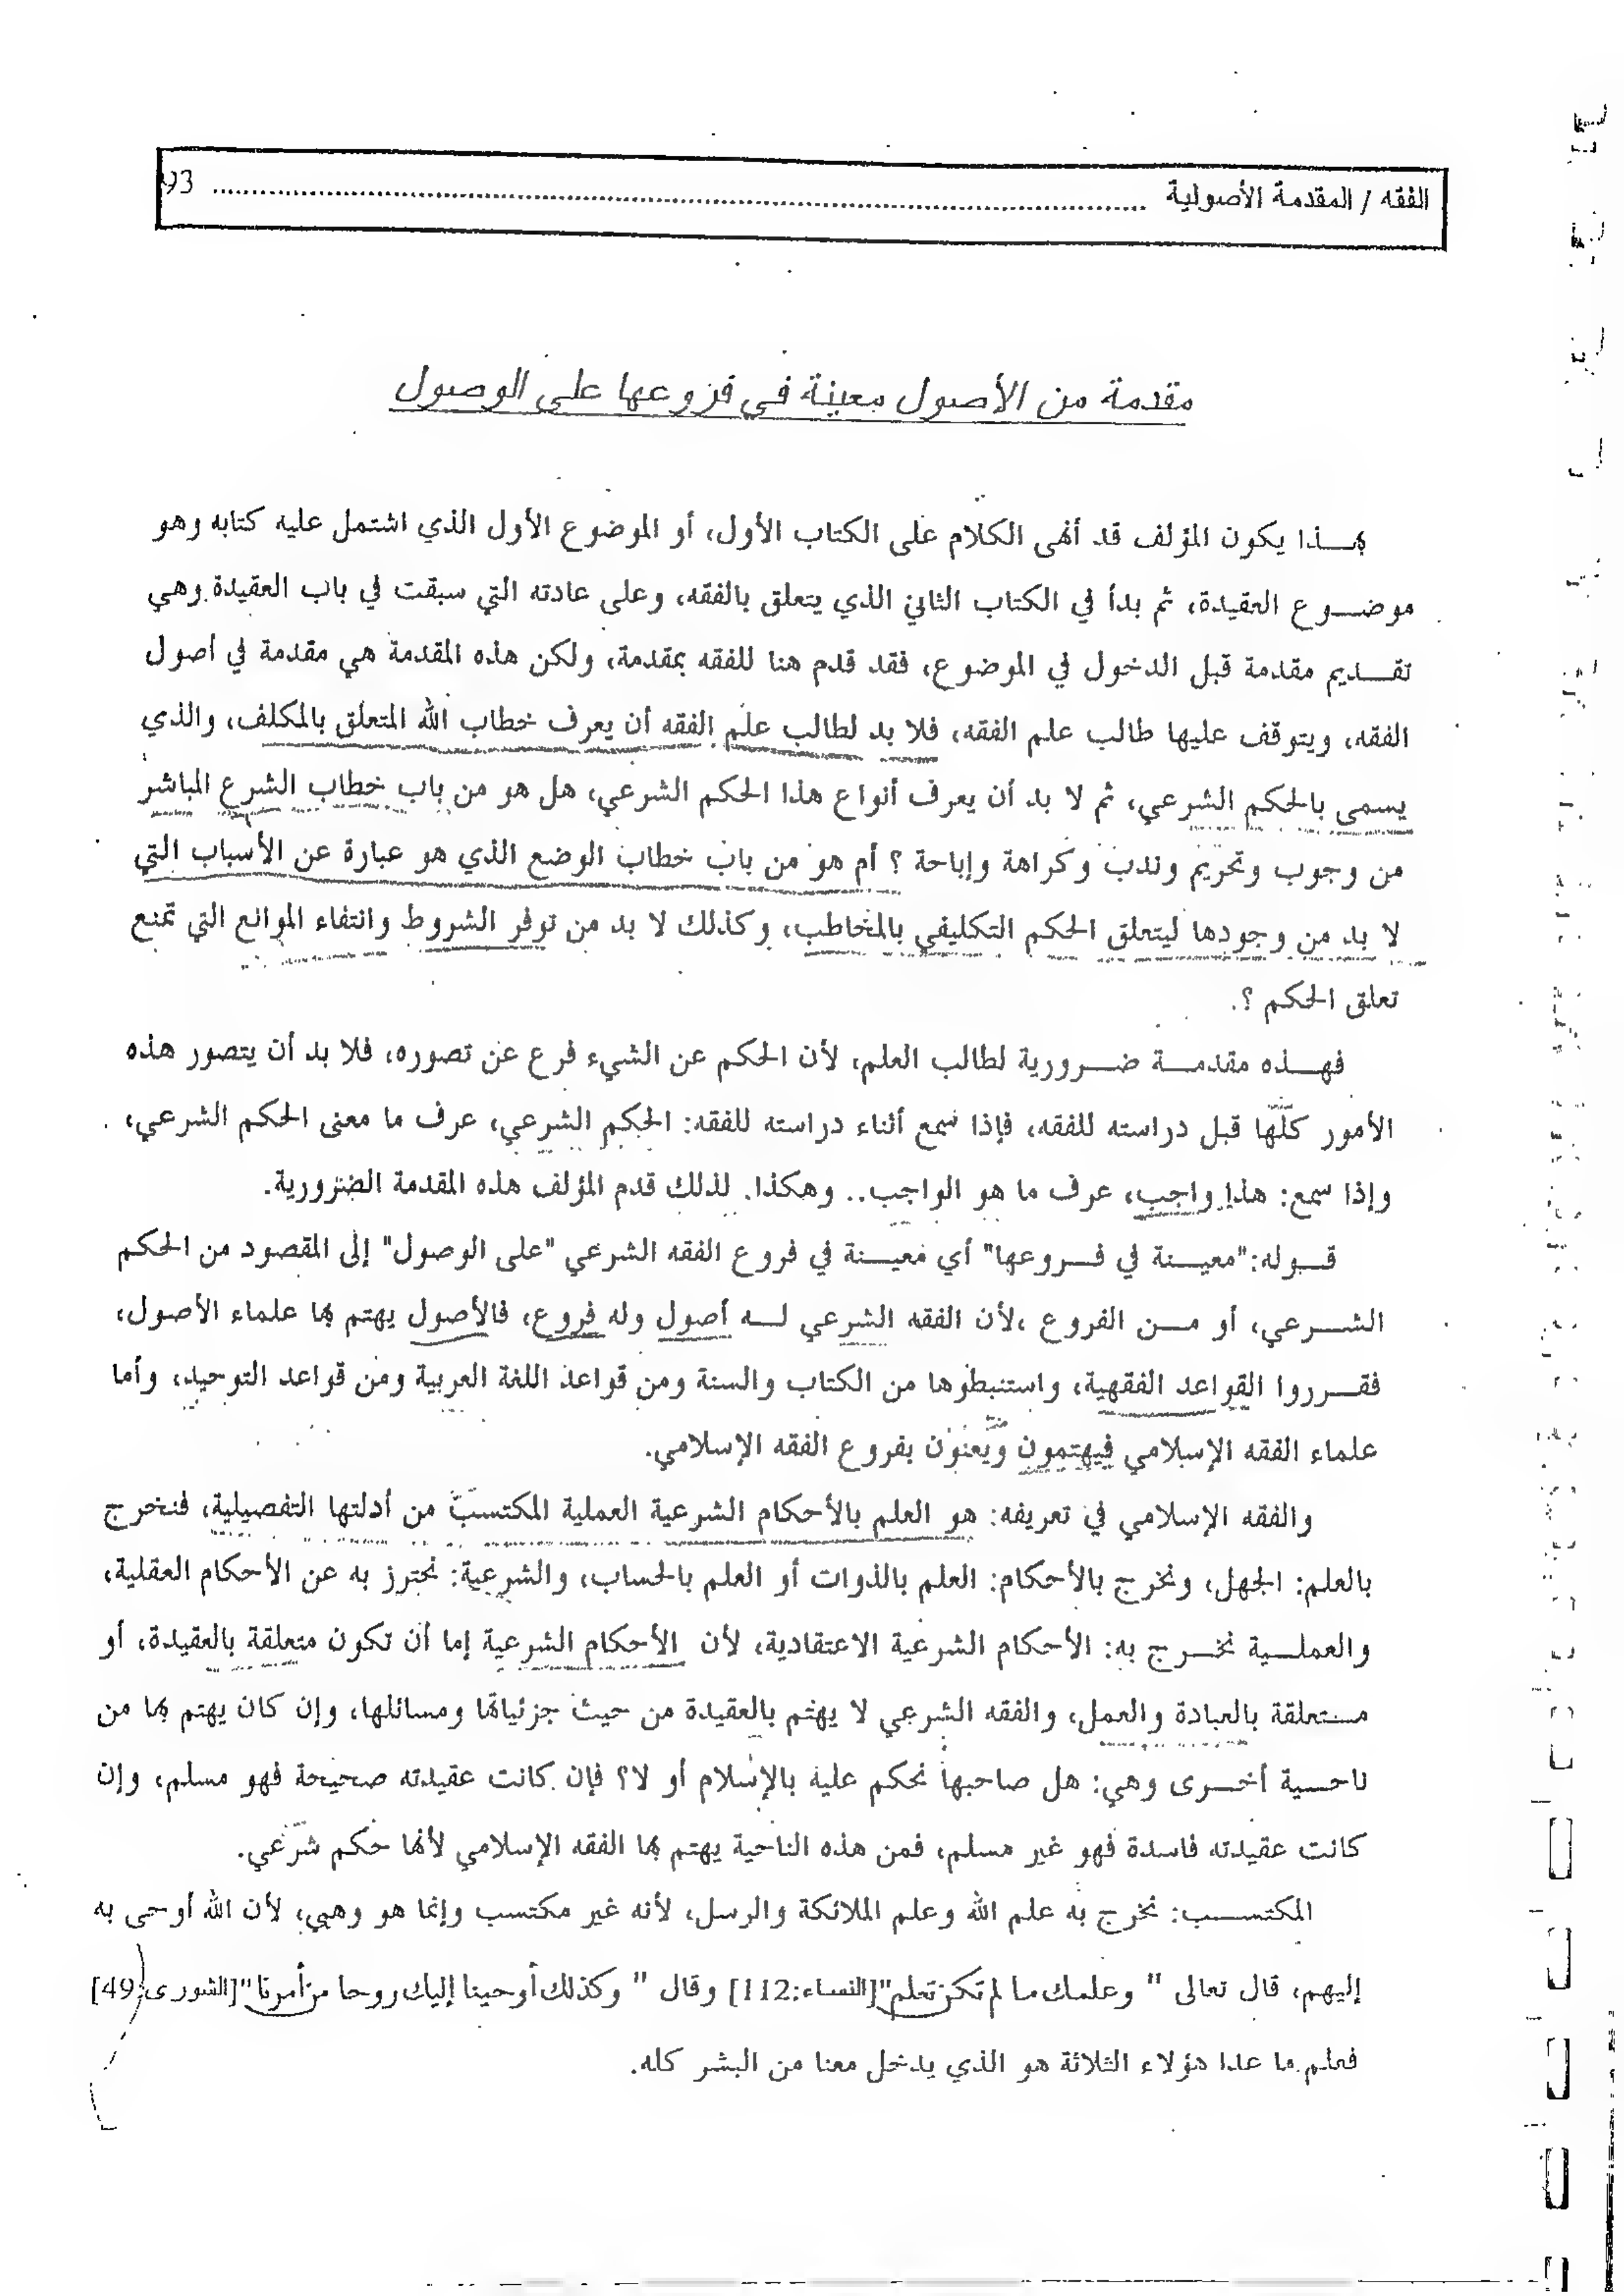 الفقه / المقدمة الأصولية ........................................................ 93
مقدمة من الأصول معينة في فروعها على الوصول
بهـذا يكون المؤلف قد أنهى الكلام على الكتاب الأول، أو الموضوع الأول الذي اشتمل عليه كتابه وهو
موضـوع العقيدة، ثم بدأ في الكتاب الثاني الذي يتعلق بالفقه، وعلى عادته التي سبقت في باب العقيدة وهي
تقـديم مقدمة قبل الدخول في الموضوع، فقد قدم هنا للفقه بمقدمة، ولكن هذه المقدمة هي مقدمة في أصول
الفقه، ويتوقف عليها طالب علم الفقه، فلا بد لطالب علم الفقه أن يعرف خطاب الله المتعلق بالمكلف، والذي
يسمى بالحكم الشرعي، ثم لا بد أن يعرف أنواع هذا الحكم الشرعي، هل هو من باب خطاب الشرع المباشر
من وجوب وتحريم وندب وكراهة وإباحة ؟ أم هو من باب خطاب الوضع الذي هو عبارة عن الأسباب التي
لا بد من وجودها ليتعلق الحكم التكليفي بالمخاطب، وكذلك لا بد من توفر الشروط وانتفاء الموانع التي تمنع
تعلق الحكم ؟.
فهـذه مقدمـة ضـرورية لطالب العلم، لأن الحكم عن الشيء فرع عن تصوره، فلا بد أن يتصور هذه
الأمور كلّها قبل دراسته للفقه، فإذا سمع أثناء دراسته للفقه: الحكم الشرعي، عرف ما معنى الحكم الشرعي،
وإذا سمع: هذا واجب، عرف ما هو الواجب.. وهكذا. لذلك قدم المؤلف هذه المقدمة الضرورية.
قـوله:"معيـنة في فـروعها" أي معيـنة في فروع الفقه الشرعي "على الوصول" إلى المقصود من الحكم
الشـرعي، أو مـن الفروع ،لأن الفقه الشرعي لـه أصول وله فروع، فالأصول يهتم بها علماء الأصول،
فقـرروا القواعد الفقهية، واستنبطوها من الكتاب والسنة ومن قواعد اللغة العربية ومن قواعد التوحيد، وأما
علماء الفقه الإسلامي فيهتمون ويعنون بفروع الفقه الإسلامي.
والفقه الإسلامي في تعريفه: هو العلم بالأحكام الشرعية العملية المكتسب من أدلتها التفصيلية، فنخرج
بالعلم: الجهل، ونخرج بالأحكام: العلم بالذوات أو العلم بالحساب، والشرعية: نحترز به عن الأحكام العقلية،
والعملـية نخـرج به: الأحكام الشرعية الاعتقادية، لأن الأحكام الشرعية إما أن تكون متعلقة بالعقيدة، أو
مـتعلقة بالعبادة والعمل، والفقه الشرعي لا يهتم بالعقيدة من حيث جزئياتها ومسائلها، وإن كان يهتم بها من
ناحـية أخـرى وهي: هل صاحبها نحكم عليه بالإسلام أو لا؟ فإن كانت عقيدته صحيحة فهو مسلم، وإن
كانت عقيدته فاسدة فهو غير مسلم، فمن هذه الناحية يهتم بها الفقه الإسلامي لأنها حكم شرعي.
المكتسـب: نخرج به علم الله وعلم الملائكة والرسل، لأنه غير مكتسب وإنما هو وهبي، لأن الله أوحى به
إليهم، قال تعالى " وعلمك ما لم تكن تعلم"[النساء:112] وقال " وكذلك أوحينا إليك روحا من أمرنا"[الشورى:49]
فعلم ما عدا هؤلاء الثلاثة هو الذي يدخل معنا من البشر كله.